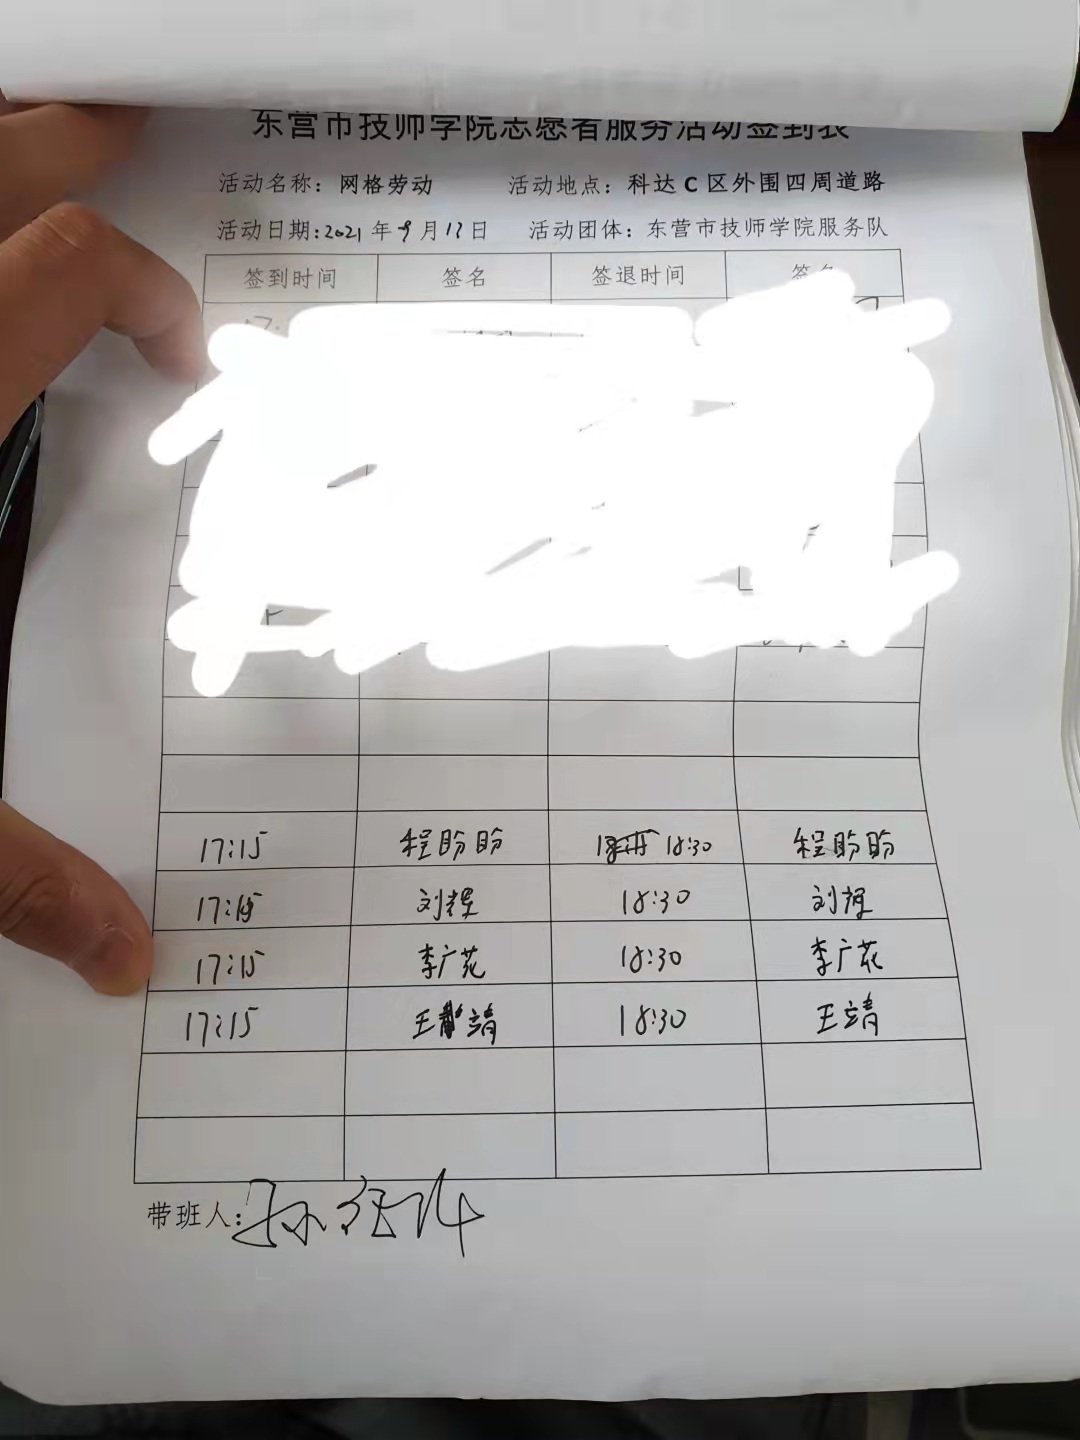 东营市技师学院志愿者服务活动签到表
活动名称：网格劳动 活动地点：科达C区外围四周道路
活动日期：2021年9月13日 活动团体：东营市技师学院服务队
签到时间 签名 签退时间 签名
17:15 程盼盼 18:30 程盼盼
17:15 刘程 18:30 刘程
17:15 李广花 18:30 李广花
17:15 王靖 18:30 王靖
带班人：孙